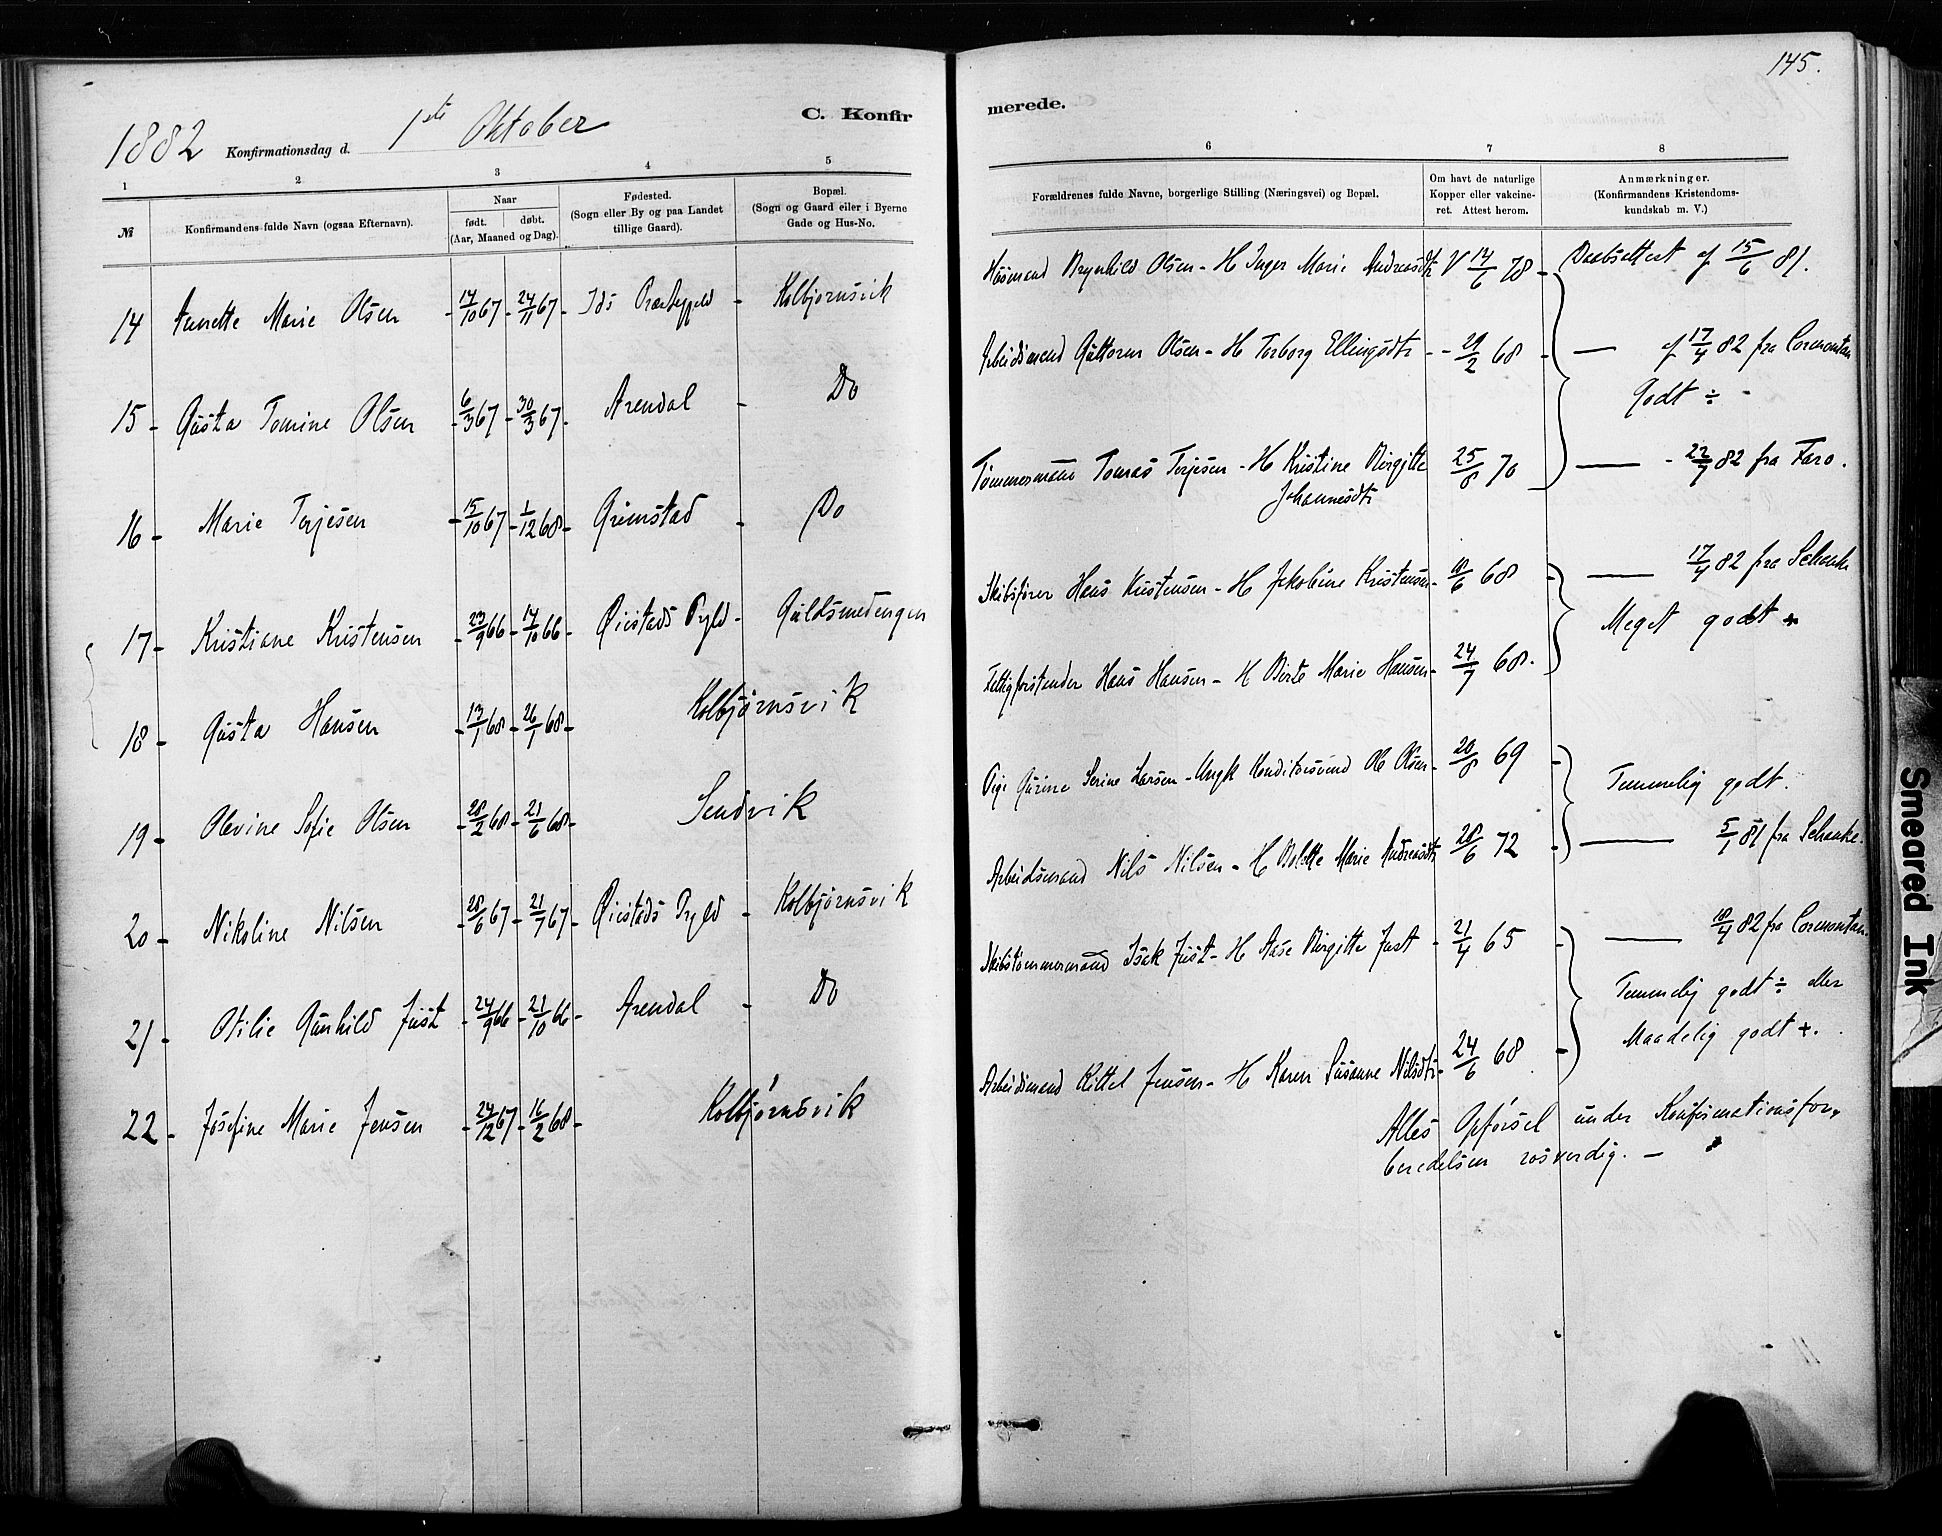 145.
1882 Konfirmationsdag d. 1ste Oktober C. Konfir
merede.
1 2 3 4 5
6 7 8
№ Konfirmandens fulde Navn (ogsaa Efternavn). Naar født. døbt. (Aar, Maaned og Dag). Fødested. (Sogn eller By og paa Landet tillige Gaard). Bopæl. (Sogn og Gaard eller i Byerne Gade og Hus-No.
Forældrenes fulde Navne, borgerlige Stilling (Næringsvei) og Bopæl. Om havt de naturlige Kopper eller vakcineret. Attest herom. Anmærkninger. (Konfirmandens Kristendomskundskab m. V.)
14 Annette Marie Olsen - 14/10 67 - 24/11 67 - Ids - Kolbjørnsvik
Husmand Brynhild Olsen - H Inger Marie Andreasdtr V 14/6 78 - Daabsattest af 15/6 81.
15 - Gusta Tomine Olsen - 6/3 67 - 30/3 67 - Arendal - Do
Arbeidsmand Guttorm Olsen - H Torborg Ellingsdtr - - 29/2 68 - — af 17/4 82 fra Coremontan
Godt ÷ -
16 - Marie Terjesen - 15/10 67 - 1/12 68 - Grimstad - Do
Tømmermand Tomas Terjesen - H Kristine Birgitte 25/8 70 — - 22/7 82 fra Faro.
Johannesdtr
17 - Kristiane Kristensen - 23/9 66 - 14/10 66 - Øiestads Pgld - Guldsmedengen
Skibsfører Hans Kristensen - H Jakobine Kristensen - 18/6 68 - — 17/4 82 fra Schanke
Meget godt +
18 - Gusta Hansen - 13/1 68 - 26/1 68 - Kolbjørnsvik
Fattigforstander Hans Hansen - H Berte Marie Hansen - 24/7 68.
19 - Olevine Sofie Olsen - 28/2 68 - 21/6 68 - Sandvik
Pige Gurine Serine Larsen - Ungk Konditorsvend Ole Olsen - 20/8 69 - Temmelig godt.
20 - Nikoline Nilsen - 28/6 67 - 21/7 67 - Øiestads Pgld - Kolbjørnsvik
Arbeidsmand Nils Nilsen - H Bolette Marie Andreasdtr 28/6 72 - — 5/1 81 fra Schanke.
21 - Otilie Gunhild Just - 24/9 66 - 21/10 66 - Arendal - Do
Skibstømmermand Isak Just - H Aase Birgitte Just - 21/4 65 - — 18/4 82 fra Coremontan.
Temmelig godt ÷ eller
Maadelig godt +.
22 - Josefine Marie Jensen - 24/12 67 - 16/2 68 - Kolbjørnsvik
Arbeidsmand Kittel Jensen - H Karen Susanne Nilsdtr - 24/6 68 -
Alles Opførsel under Konfirmationsfor-
beredelsen rosverdig. —
Smeared Ink